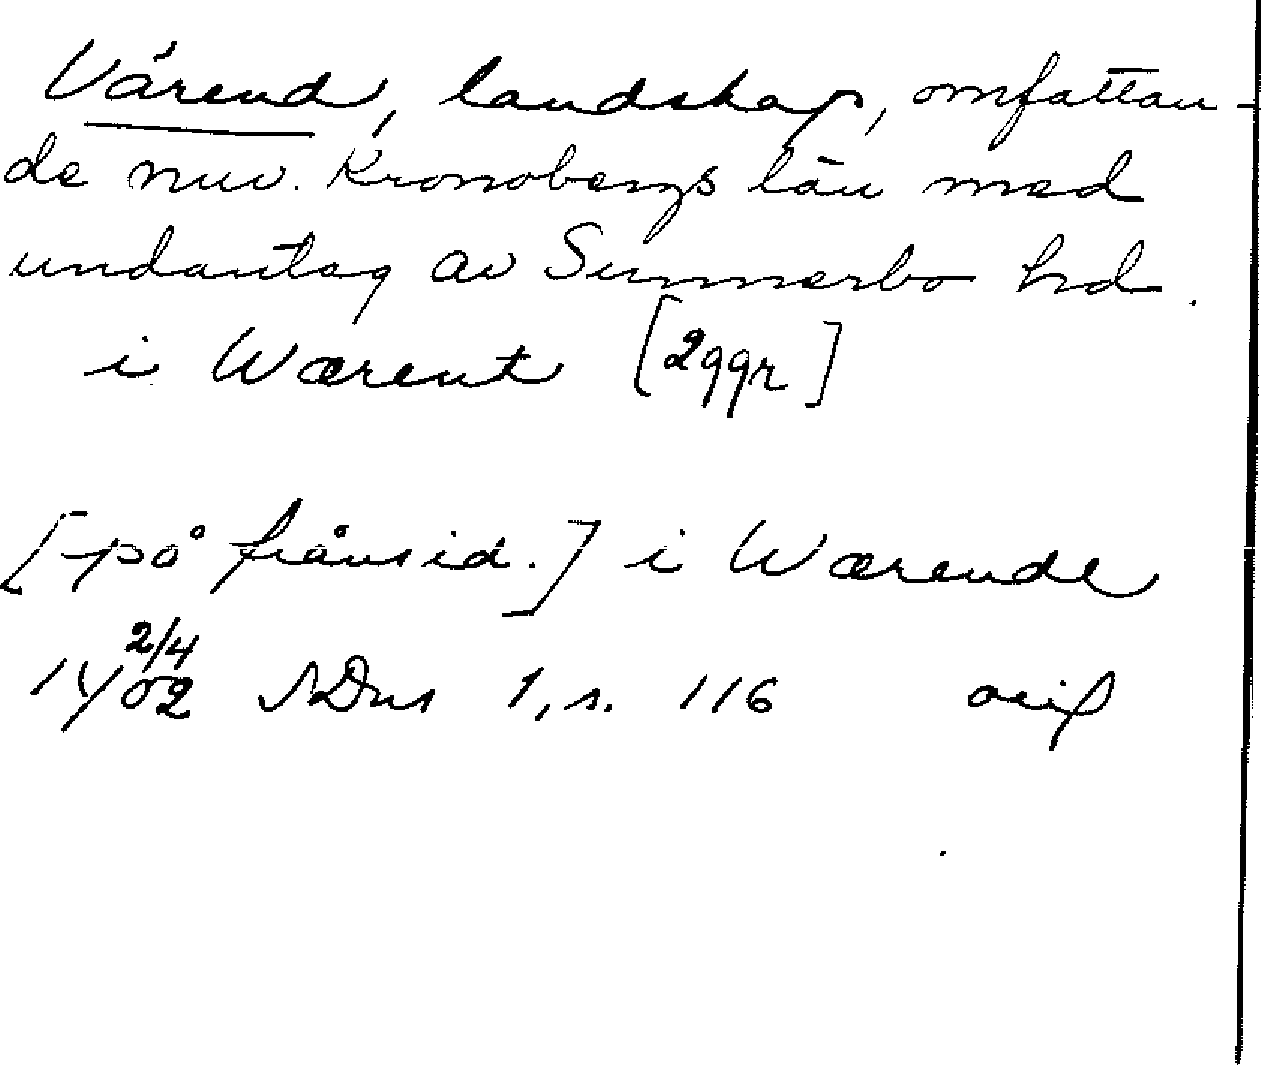 Värend, landskap, omfattan-
de nuv. Kronobergs län med
undantag av Sunnerbo hd.
i Wærent [2 ggr]
[på frånsid.] i Wærende
14 2/4 02 SDns 1, s. 116 orig